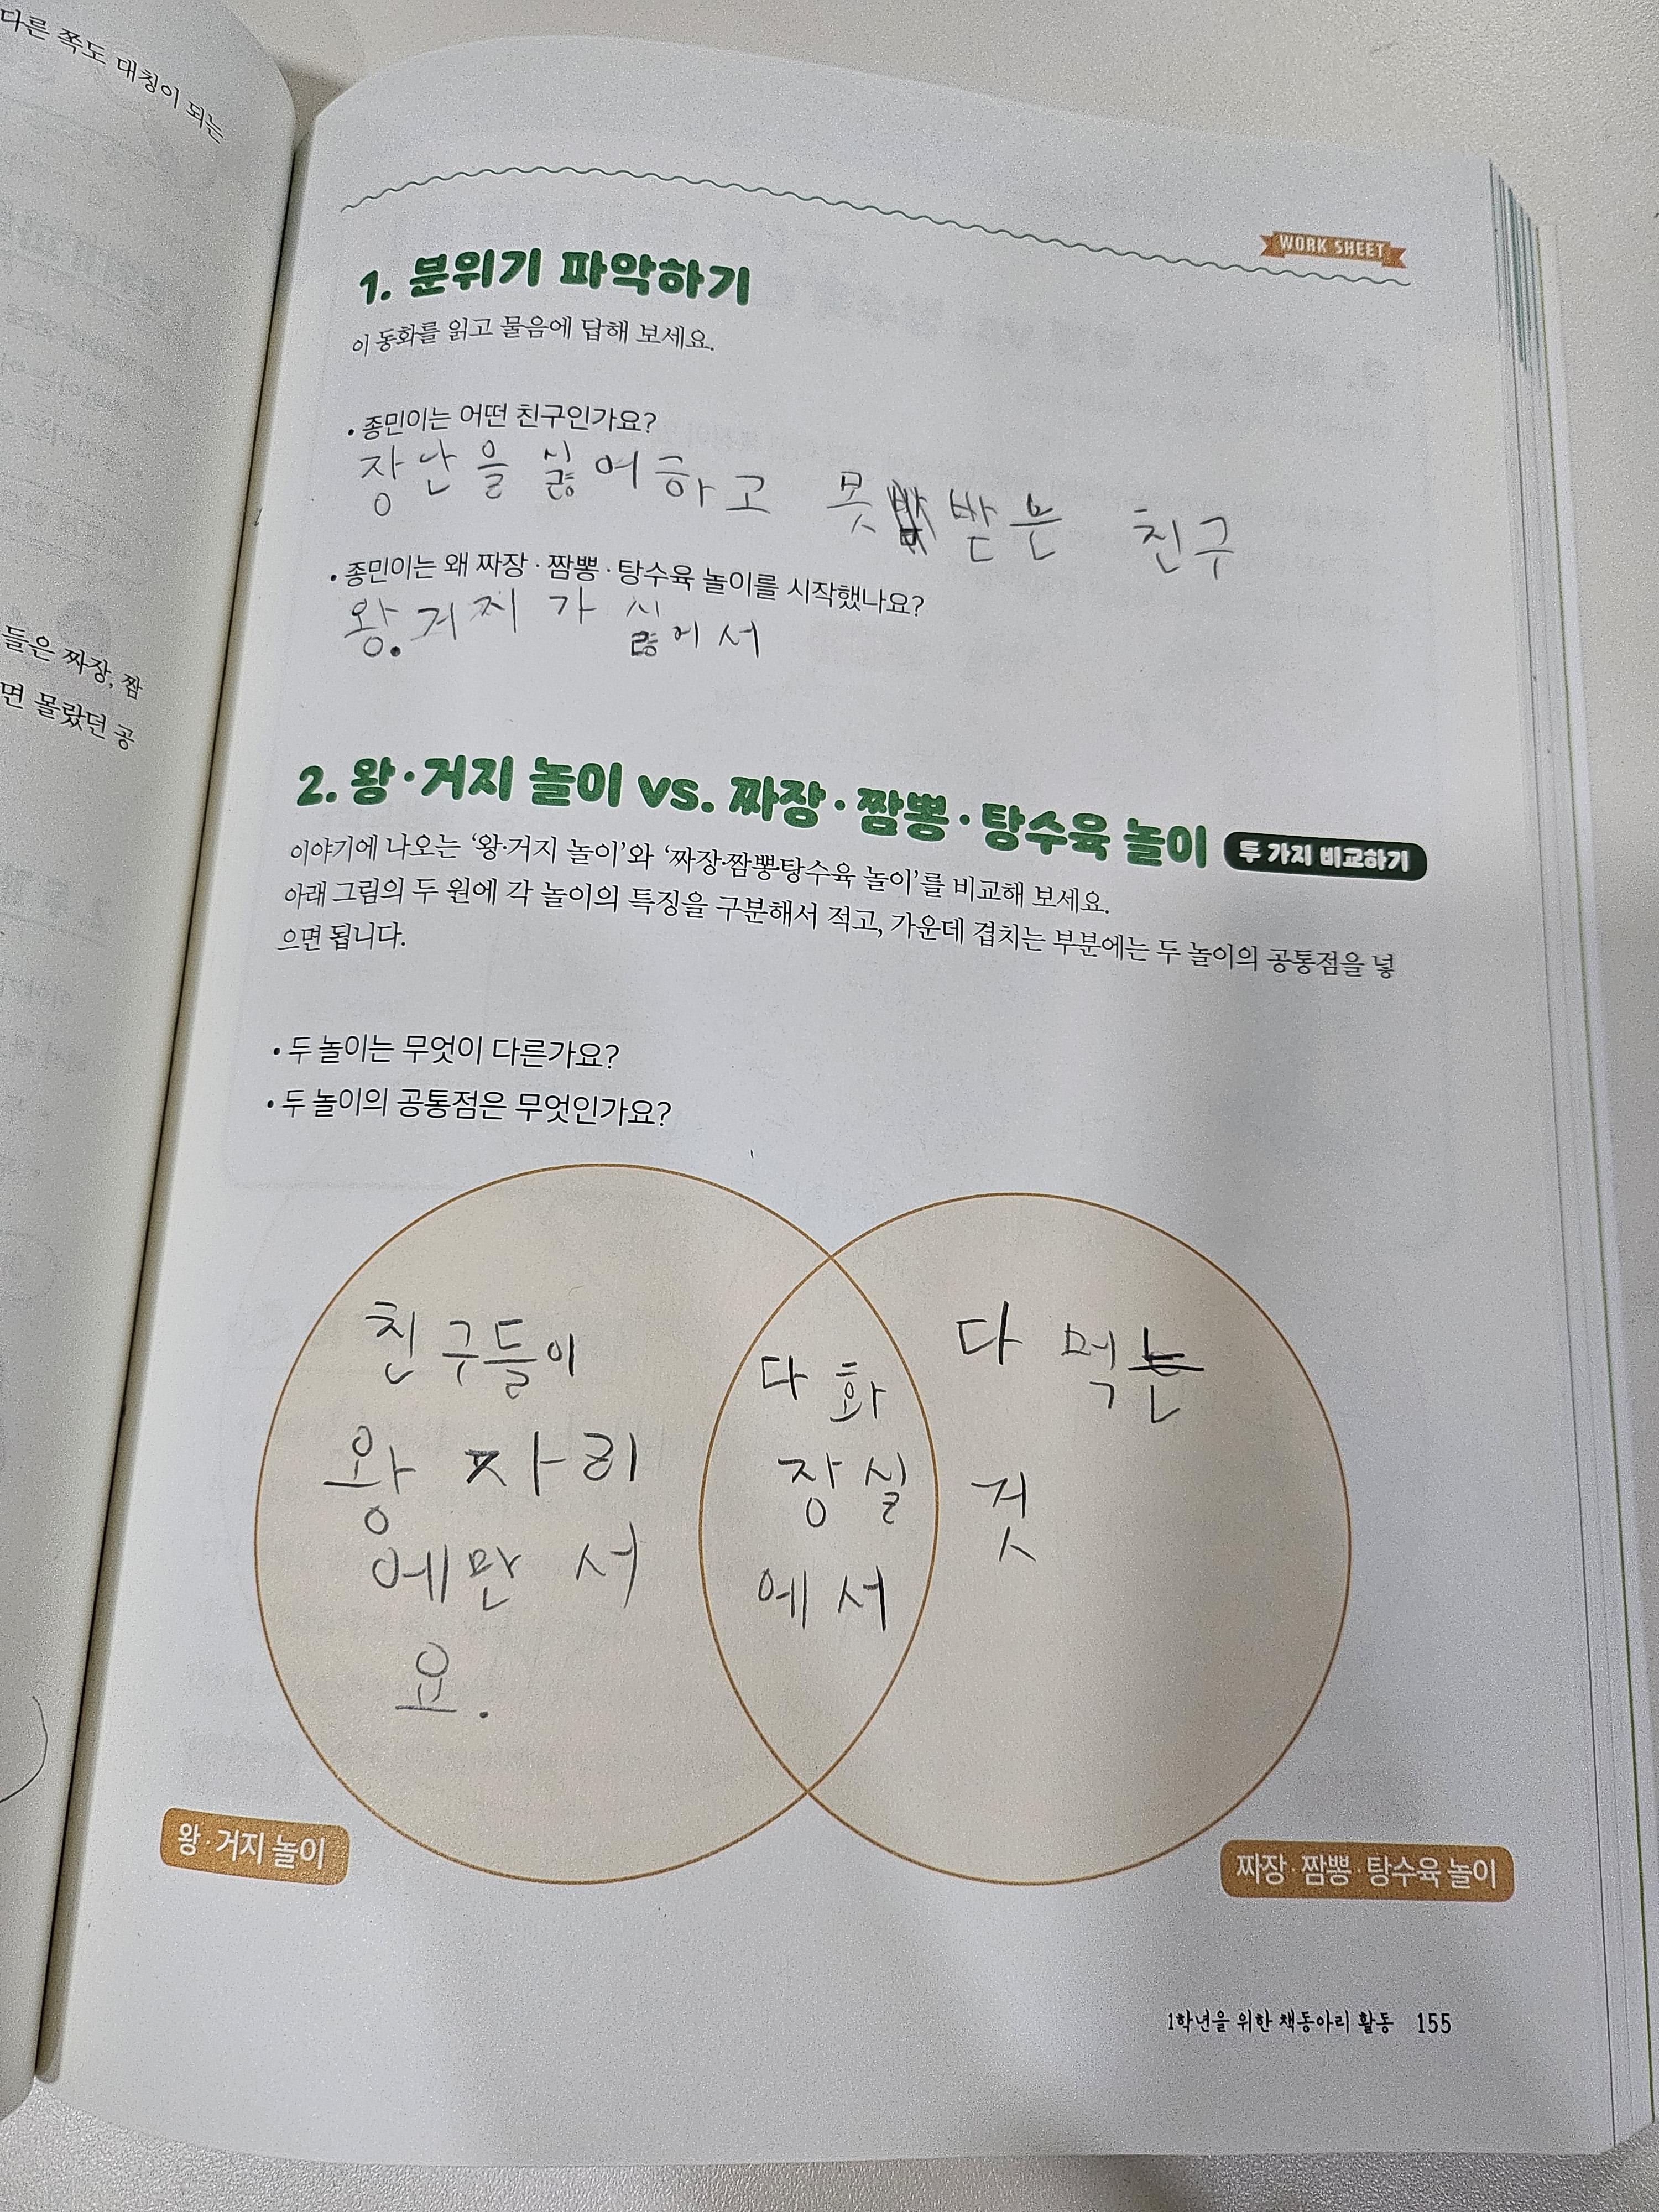 다른 쪽도 대칭이 되는
들은 짜장, 짬
면 몰랐던 공
WORK SHEET
1. 분위기 파악하기
이 동화를 읽고 물음에 답해 보세요.
• 종민이는 어떤 친구인가요?
장난을 싫어하고 못 받은 친구
• 종민이는 왜 짜장·짬뽕·탕수육 놀이를 시작했나요?
왕.거지 가 싫에서
2. 왕·거지 놀이 vs. 짜장·짬뽕·탕수육 놀이 두 가지 비교하기
이야기에 나오는 ‘왕·거지 놀이’와 ‘짜장·짬뽕·탕수육 놀이’를 비교해 보세요.
아래 그림의 두 원에 각 놀이의 특징을 구분해서 적고, 가운데 겹치는 부분에는 두 놀이의 공통점을 넣
으면 됩니다.
• 두 놀이는 무엇이 다른가요?
• 두 놀이의 공통점은 무엇인가요?
친구들이
왕 자리
에만 서
요.
다 화
장실
에서
다 먹는
것
왕·거지 놀이
짜장·짬뽕·탕수육 놀이
1학년을 위한 책동아리 활동 155